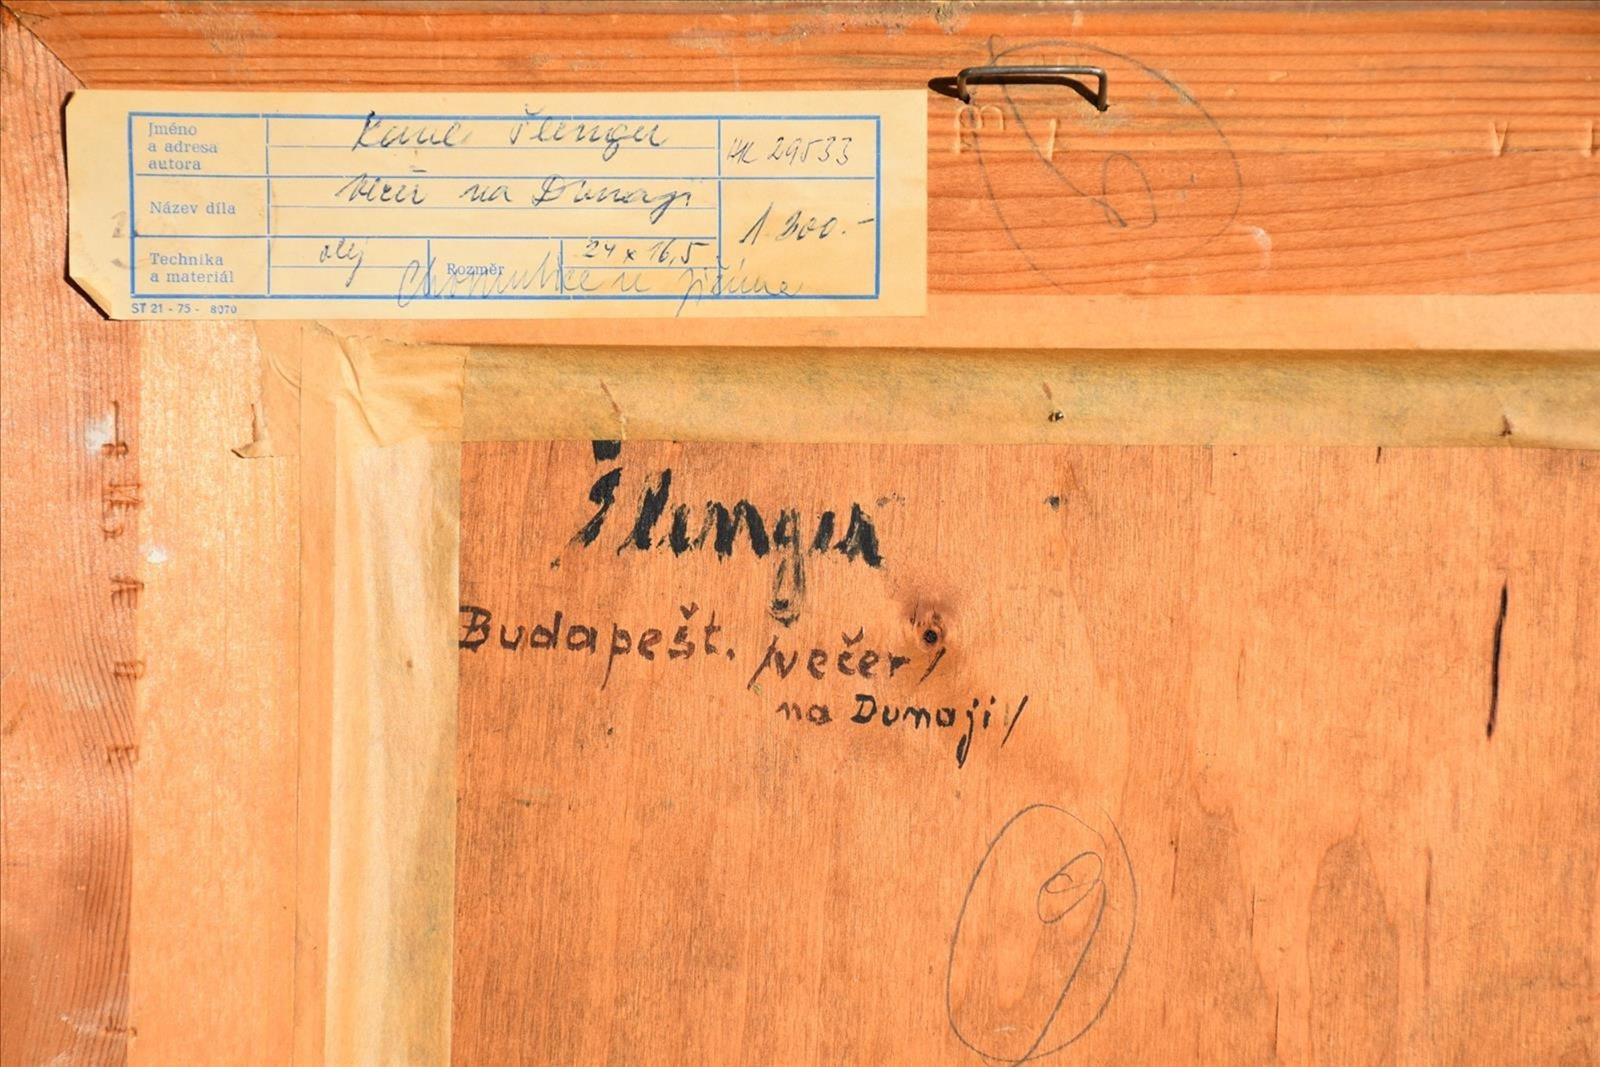 Jméno
a adresa
autora
Karel Šlenger
HK 29533
Název díla
Večer na Dunaji
1.300.-
Technika
a materiál
olej
Rozměr
24 x 16,5
Chomutice u Jičína
ST 21 - 75 - 8070
Šlenger
Budapešť. /večer/
na Dunaji/
9
9